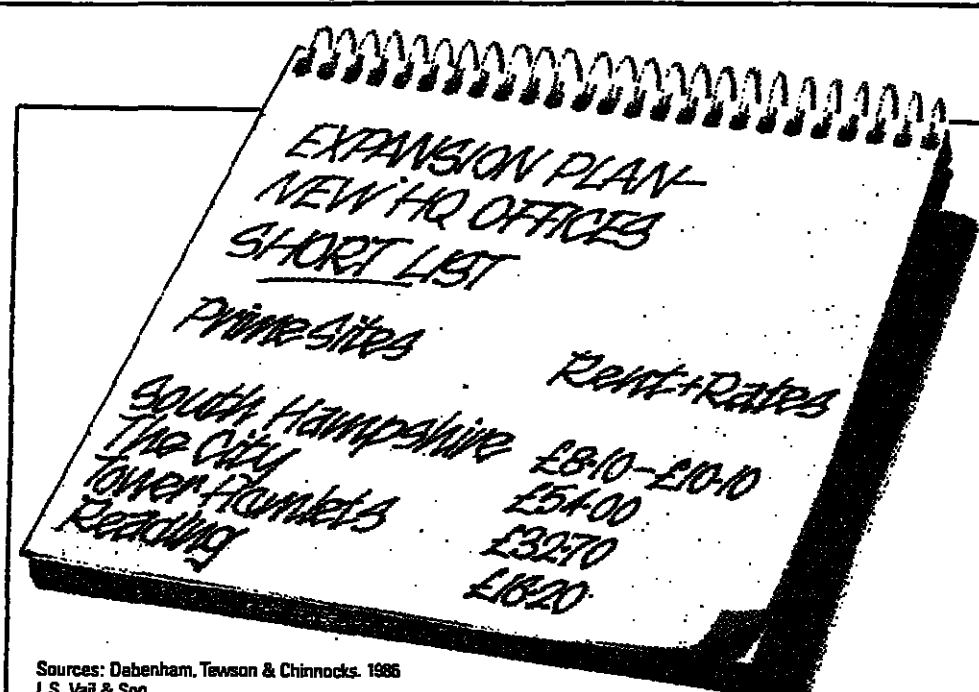 EXPANSION PLAN-
NEW HQ OFFICES
SHORT LIST
Prime Sites
Rent+Rates
South Hampshire £8·10-£10·10
The City £54·00
Tower Hamlets £32·70
Reading £18·20
Sources: Debenham, Tewson & Chinnocks. 1986
L.S. Vail & Son